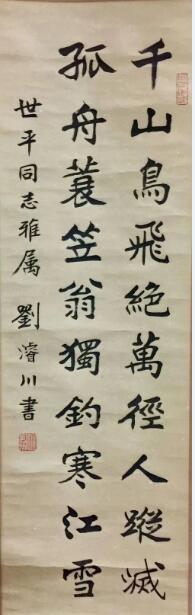 千山鳥飛絕萬徑人蹤滅
孤舟蓑笠翁獨釣寒江雪
世平同志雅属 劉濬川書